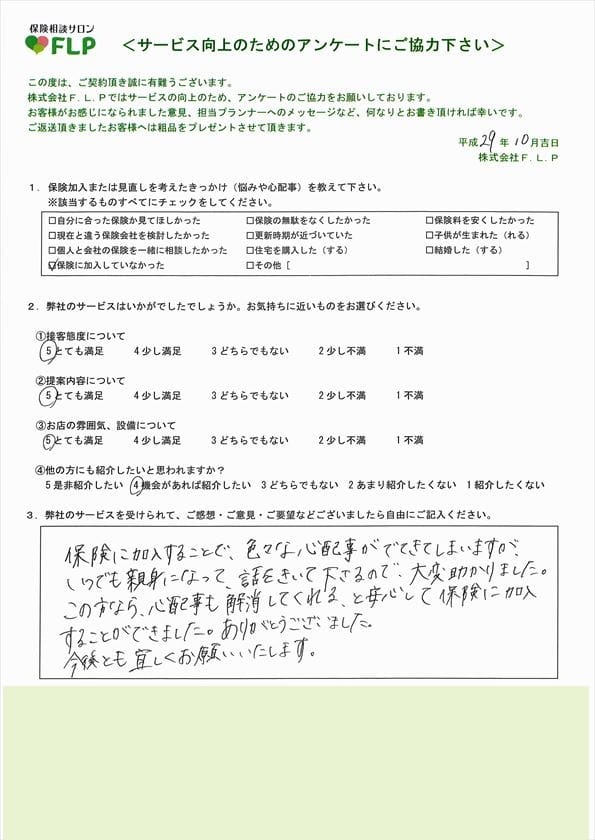 保険相談サロン
FLP
＜サービス向上のためのアンケートにご協力下さい＞
この度は、ご契約頂き誠に有難うございます。
株式会社Ｆ．Ｌ．Ｐではサービスの向上のため、アンケートのご協力をお願いしております。
お客様がお感じになられました意見、担当プランナーへのメッセージなど、何なりとお書き頂ければ幸いです。
ご返送頂きましたお客様へは粗品をプレゼントさせて頂きます。
平成 29 年 10 月吉日
株式会社Ｆ．Ｌ．Ｐ
１．保険加入または見直しを考えたきっかけ（悩みや心配事）を教えて下さい。
※該当するものすべてにチェックをしてください。
□自分に合った保険か見てほしかった □保険の無駄をなくしたかった □保険料を安くしたかった
□現在と違う保険会社を検討したかった □更新時期が近づいていた □子供が生まれた（れる）
□個人と会社の保険を一緒に相談したかった □住宅を購入した（する） □結婚した（する）
☑保険に加入していなかった □その他［ ］
２．弊社のサービスはいかがでしたでしょうか。お気持ちに近いものをお選びください。
①接客態度について
５とても満足 ４少し満足 ３どちらでもない ２少し不満 １不満
②提案内容について
５とても満足 ４少し満足 ３どちらでもない ２少し不満 １不満
③お店の雰囲気、設備について
５とても満足 ４少し満足 ３どちらでもない ２少し不満 １不満
④他の方にも紹介したいと思われますか？
５是非紹介したい ４機会があれば紹介したい ３どちらでもない ２あまり紹介したくない １紹介したくない
３．弊社のサービスを受けられて、ご感想・ご意見・ご要望などございましたら自由にご記入ください。
保険に加入することで、色々な心配事がでてきてしまいますが、
いつでも親身になって、話をきいて下さるので、大変助かりました。
この方なら、心配事も解消してくれる、と安心して保険に加入
することができました。ありがとうございました。
今後とも宜しくお願いいたします。